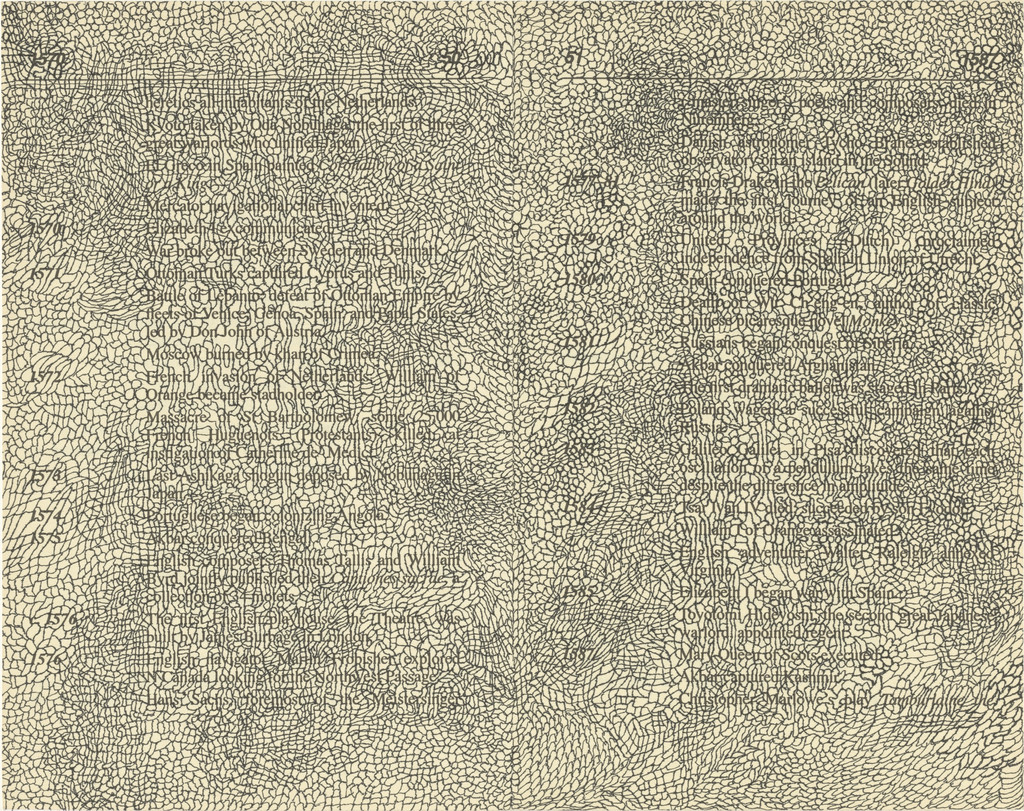 60
heretics all inhabitants of the Netherlands.
Kyoto taken by Oda Nobunaga, the first of three
great warlords who unified Japan.
El Greco in Spain painted
Mercator navigational chart invented.
1570
Elizabeth I excommunicated.
War broke out between Sweden and Denmark.
1571
Ottoman Turks captured Cyprus and Tunis.
Battle of Lepanto: defeat of Ottoman Empire by
fleets of Venice, Genoa, Spain, and Papal States,
led by Don John of Austria.
Moscow burned by khan of Crimea.
1572
French invasion of Netherlands. William of
Orange became stadholder.
Massacre of St. Bartholomew: some
French Huguenots (Protestants) killed at
instigation of Catherine de Médici.
1573
Last Ashikaga shogun deposed by Nobunaga in
Japan.
1574
Portuguese began colonizing Angola.
1575
Akbar conquered Bengal.
English composers Thomas Tallis and William
Byrd jointly published their Cantiones sacrae, a
collection of 34 motets.
1576
The first English playhouse, The Theatre, was
built by James Burbage in London.
1576
English navigator Martin Frobisher explored
N. Canada looking for the Northwest Passage.
Hans Sachs, foremost of the Meistersinger
61
1587
(master singers), poets and composers, died in
Nuremberg.
Danish astronomer Tycho Brahe established
observatory on an island in the Sound.
1577
Francis Drake in the Pelican (later Golden Hind)
made the first journey of an English subject
around the world.
1579
United Provinces (Dutch) proclaimed
independence from Spain in Union of Utrecht.
1580
Spain conquered Portugal.
Death of Wu Ch'eng-en, author of
Chinese picaresque novel Monkey.
1581
Russians began conquest of Siberia.
Akbar conquered Afghanistan.
The first dramatic ballet was staged in Paris.
1582
Poland waged a successful campaign against
Russia.
Galileo Galilei in Pisa discovered that each
oscillation of a pendulum takes the same time
despite the difference in amplitude.
1584
Tsar Ivan IV died, succeeded by son Fyodor.
William of Orange assassinated.
English adventurer Walter Raleigh annexed
Virginia.
1585
Elizabeth I began war with Spain.
Toyotomi Hideyoshi, the second great Japanese
warlord, appointed regent.
1587
Mary Queen of Scots executed.
Akbar captured Kashmir.
Christopher Marlowe's play Tamburlaine the